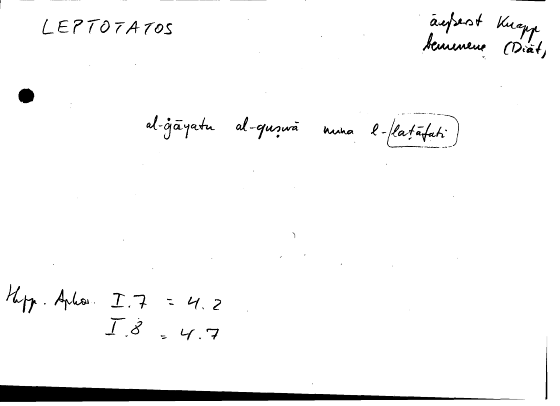 LEPTOTATOS
äußerst Knapp
bemessene (Diät)
al-ġāyatu al-quṣwā mina l-laṭāfati
Hipp. Aphor. I.7 = 4.2
I.8 = 4.7